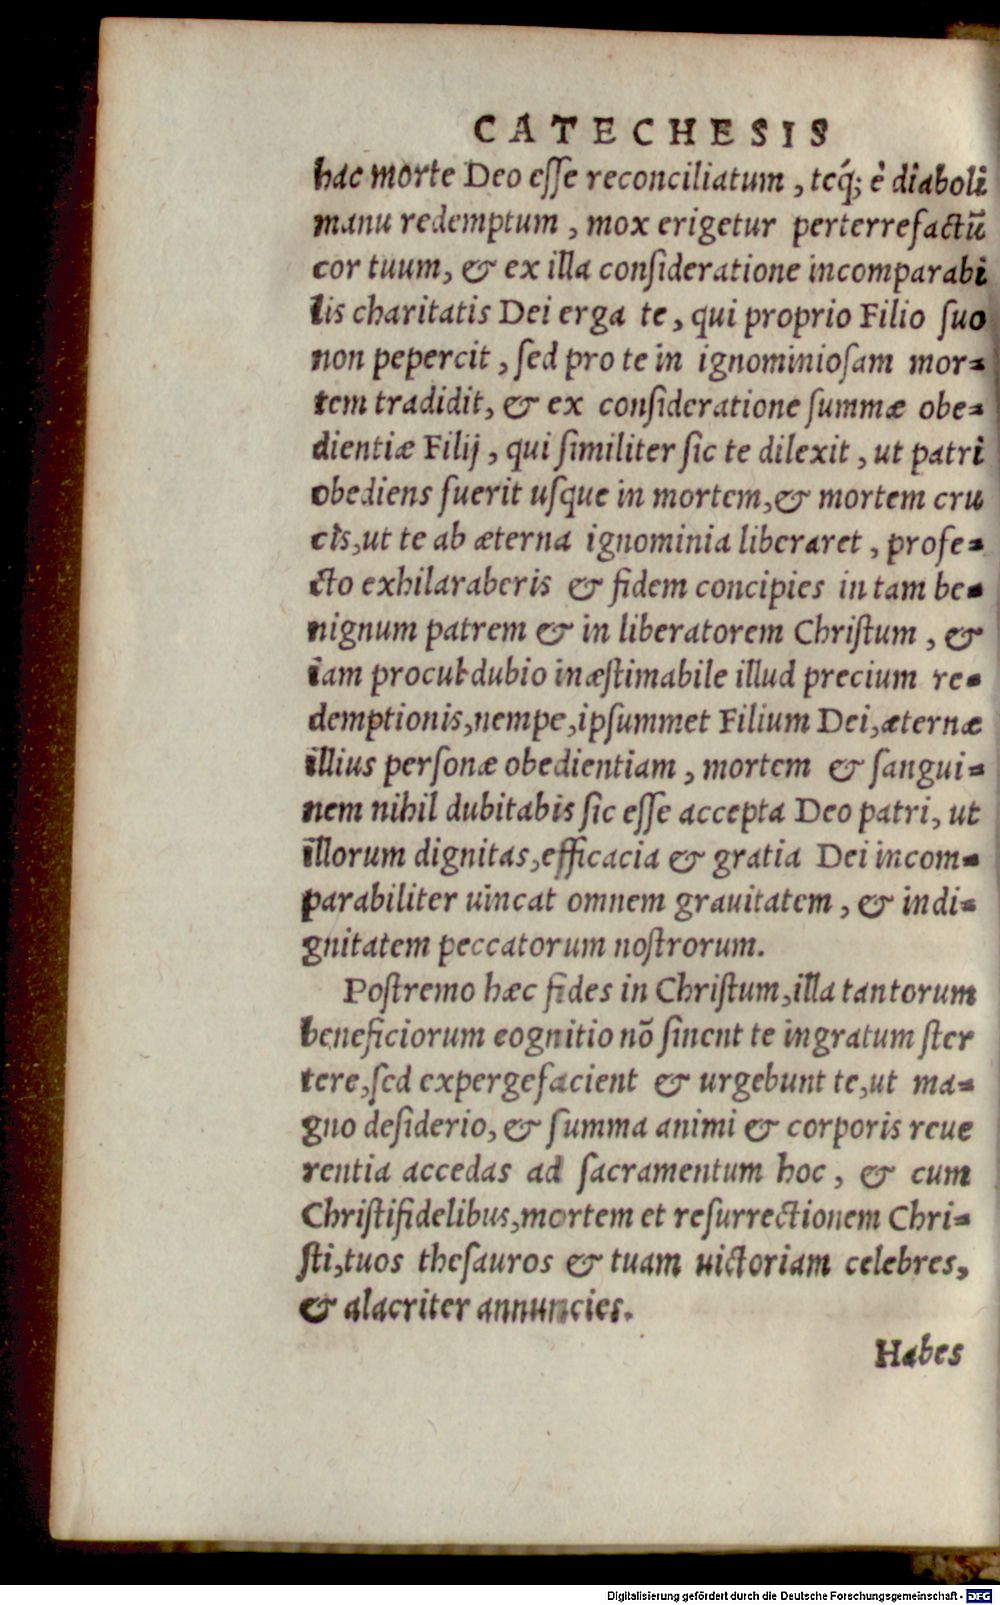 CATECHESIS
hac morte Deo esse reconciliatum, teq́; è diaboli
manu redemptum, mox erigetur perterrefactũ
cor tuum, & ex illa consideratione incomparabi
lis charitatis Dei erga te, qui proprio Filio suo
non pepercit, sed pro te in ignominiosam mor-
tem tradidit, & ex consideratione summæ obe-
dientiæ Filij, qui similiter sic te dilexit, ut patri
obediens fuerit usque in mortem, & mortem cru
cis, ut te ab æterna ignominia liberaret, profe-
cto exhilaraberis & fidem concipies in tam be-
nignum patrem & in liberatorem Christum, &
iam procul dubio inæstimabile illud precium re-
demptionis, nempe, ipsummet Filium Dei, æternæ
illius personæ obedientiam, mortem & sangui-
nem nihil dubitabis sic esse accepta Deo patri, ut
illorum dignitas, efficacia & gratia Dei incom-
parabiliter uincat omnem grauitatem, & indi-
gnitatem peccatorum nostrorum.
Postremo hæc fides in Christum, illa tantorum
beneficiorum eognitio nō sinent te ingratum ster
tere, sed expergefacient & urgebunt te, ut ma-
gno desiderio, & summa animi & corporis reue
rentia accedas ad sacramentum hoc, & cum
Christifidelibus, mortem et resurrectionem Chri-
sti, tuos thesauros & tuam uictoriam celebres,
& alacriter annuncies.
Habes
Digitalisierung gefördert durch die Deutsche Forschungsgemeinschaft - DFG